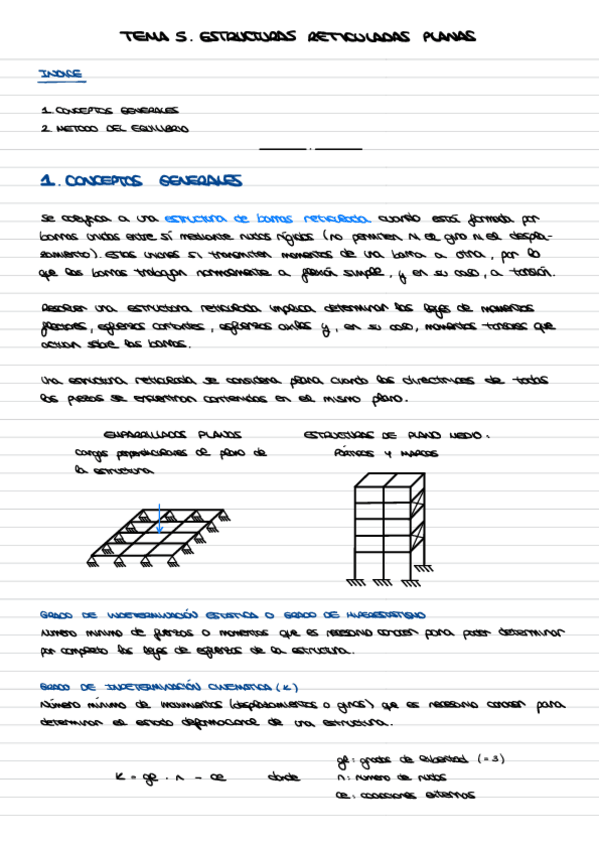 TEMA 5. ESTRUCTURAS RETICULADAS PLANAS
INDICE
1. CONCEPTOS GENERALES
2. METODO DEL EQUILIBRIO
1. CONCEPTOS GENERALES
Se califica a una estructura de barras reticulada cuando está formada por
barras unidas entre sí mediante nudos rígidos (no permiten ni el giro ni el despla-
zamiento). Estas uniones si transmiten momentos de una barra a otra, por lo
que las barras trabajan normalmente a flexión simple, y en su caso, a torsión.
Resolver una estructura reticulada implica determinar las leyes de momentos
flectores, esfuerzos cortantes, esfuerzos axiles y, en su caso, momentos torsores que
actúan sobre las barras.
Una estructura reticulada se considera plana cuando las directrices de todas
las piezas se encuentran contenidas en el mismo plano.
EMPARRILLADOS PLANOS
cargas perpendiculares al plano de
la estructura
ESTRUCTURAS DE PLANO MEDIO:
PÓRTICOS Y MARCOS
GRADO DE INDETERMINACIÓN ESTÁTICA O GRADO DE HIPERESTATISMO
Número mínimo de fuerzas o momentos que es necesario conocer para poder determinar
por completo las leyes de esfuerzos de la estructura.
GRADO DE INDETERMINACIÓN CINEMATICA (K)
Número mínimo de movimientos (desplazamientos o giros) que es necesario conocer para
determinar el estado deformacional de una estructura.
K = gl · n - ce donde
gl: grados de libertad (=3)
n: número de nudos
ce: coacciones externas